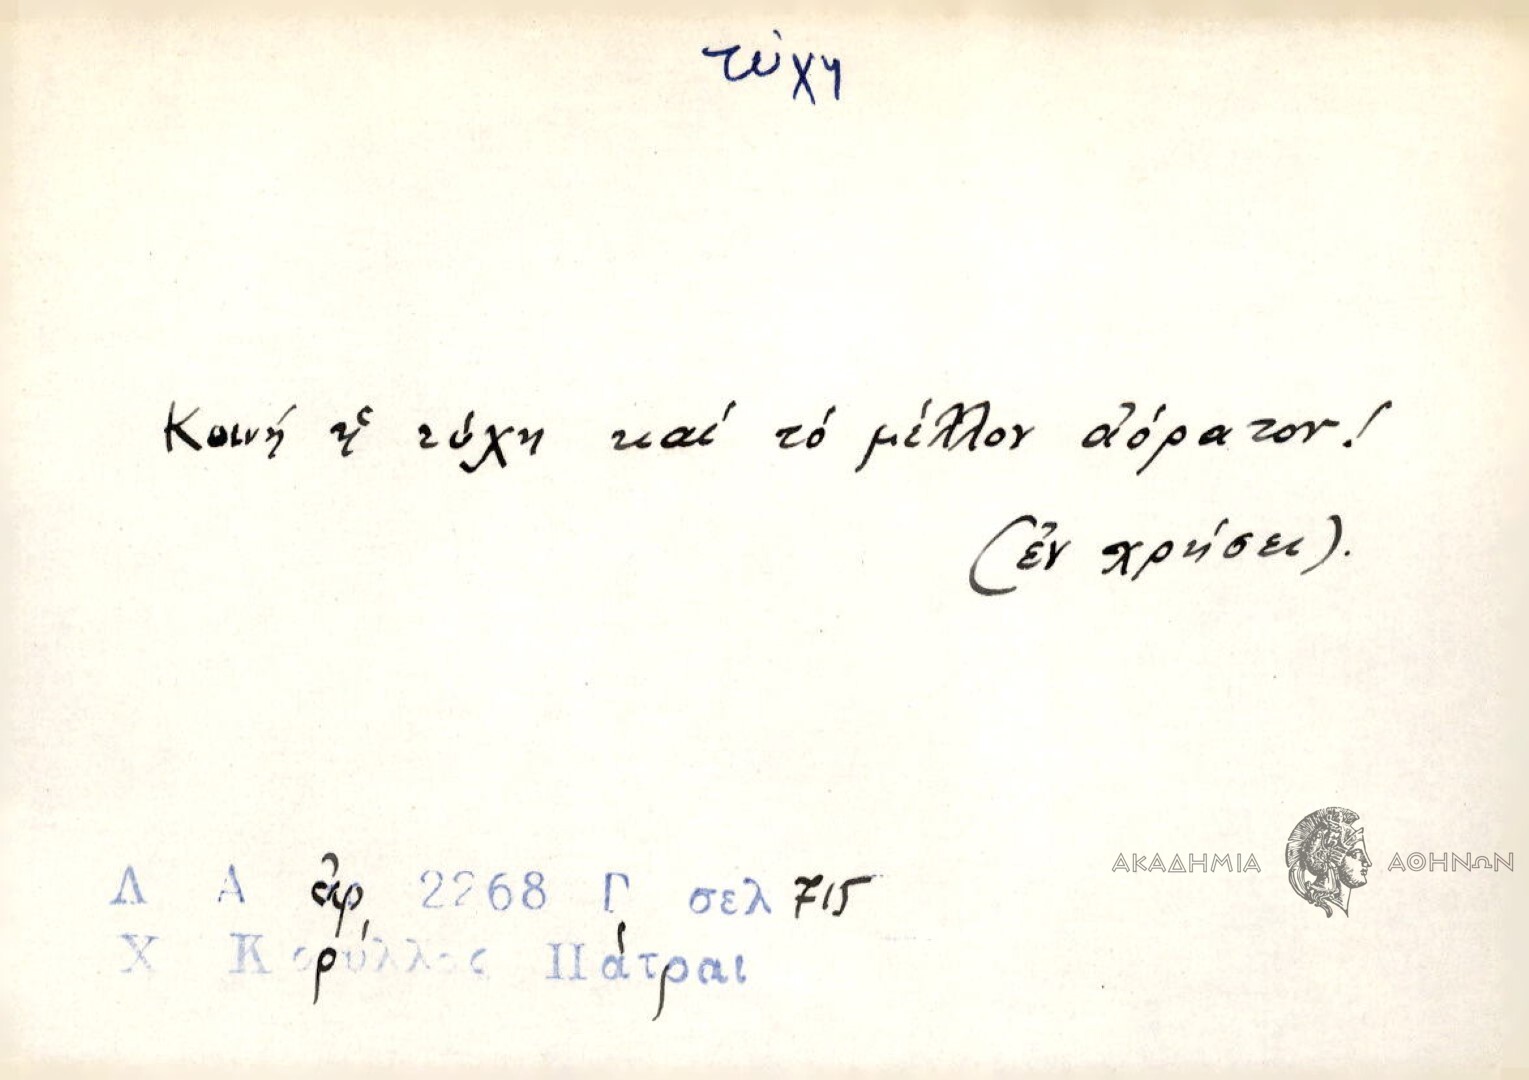 τύχη
Κοινή ἡ τύχη καί τό μέλλον ἀόρατον!
(ἐν χρήσει).
Λ Α ἀρ 2268 Γ σελ 715
Χ Κορύλλος Πάτραι
ΑΚΑΔΗΜΙΑ ΑΘΗΝΩΝ